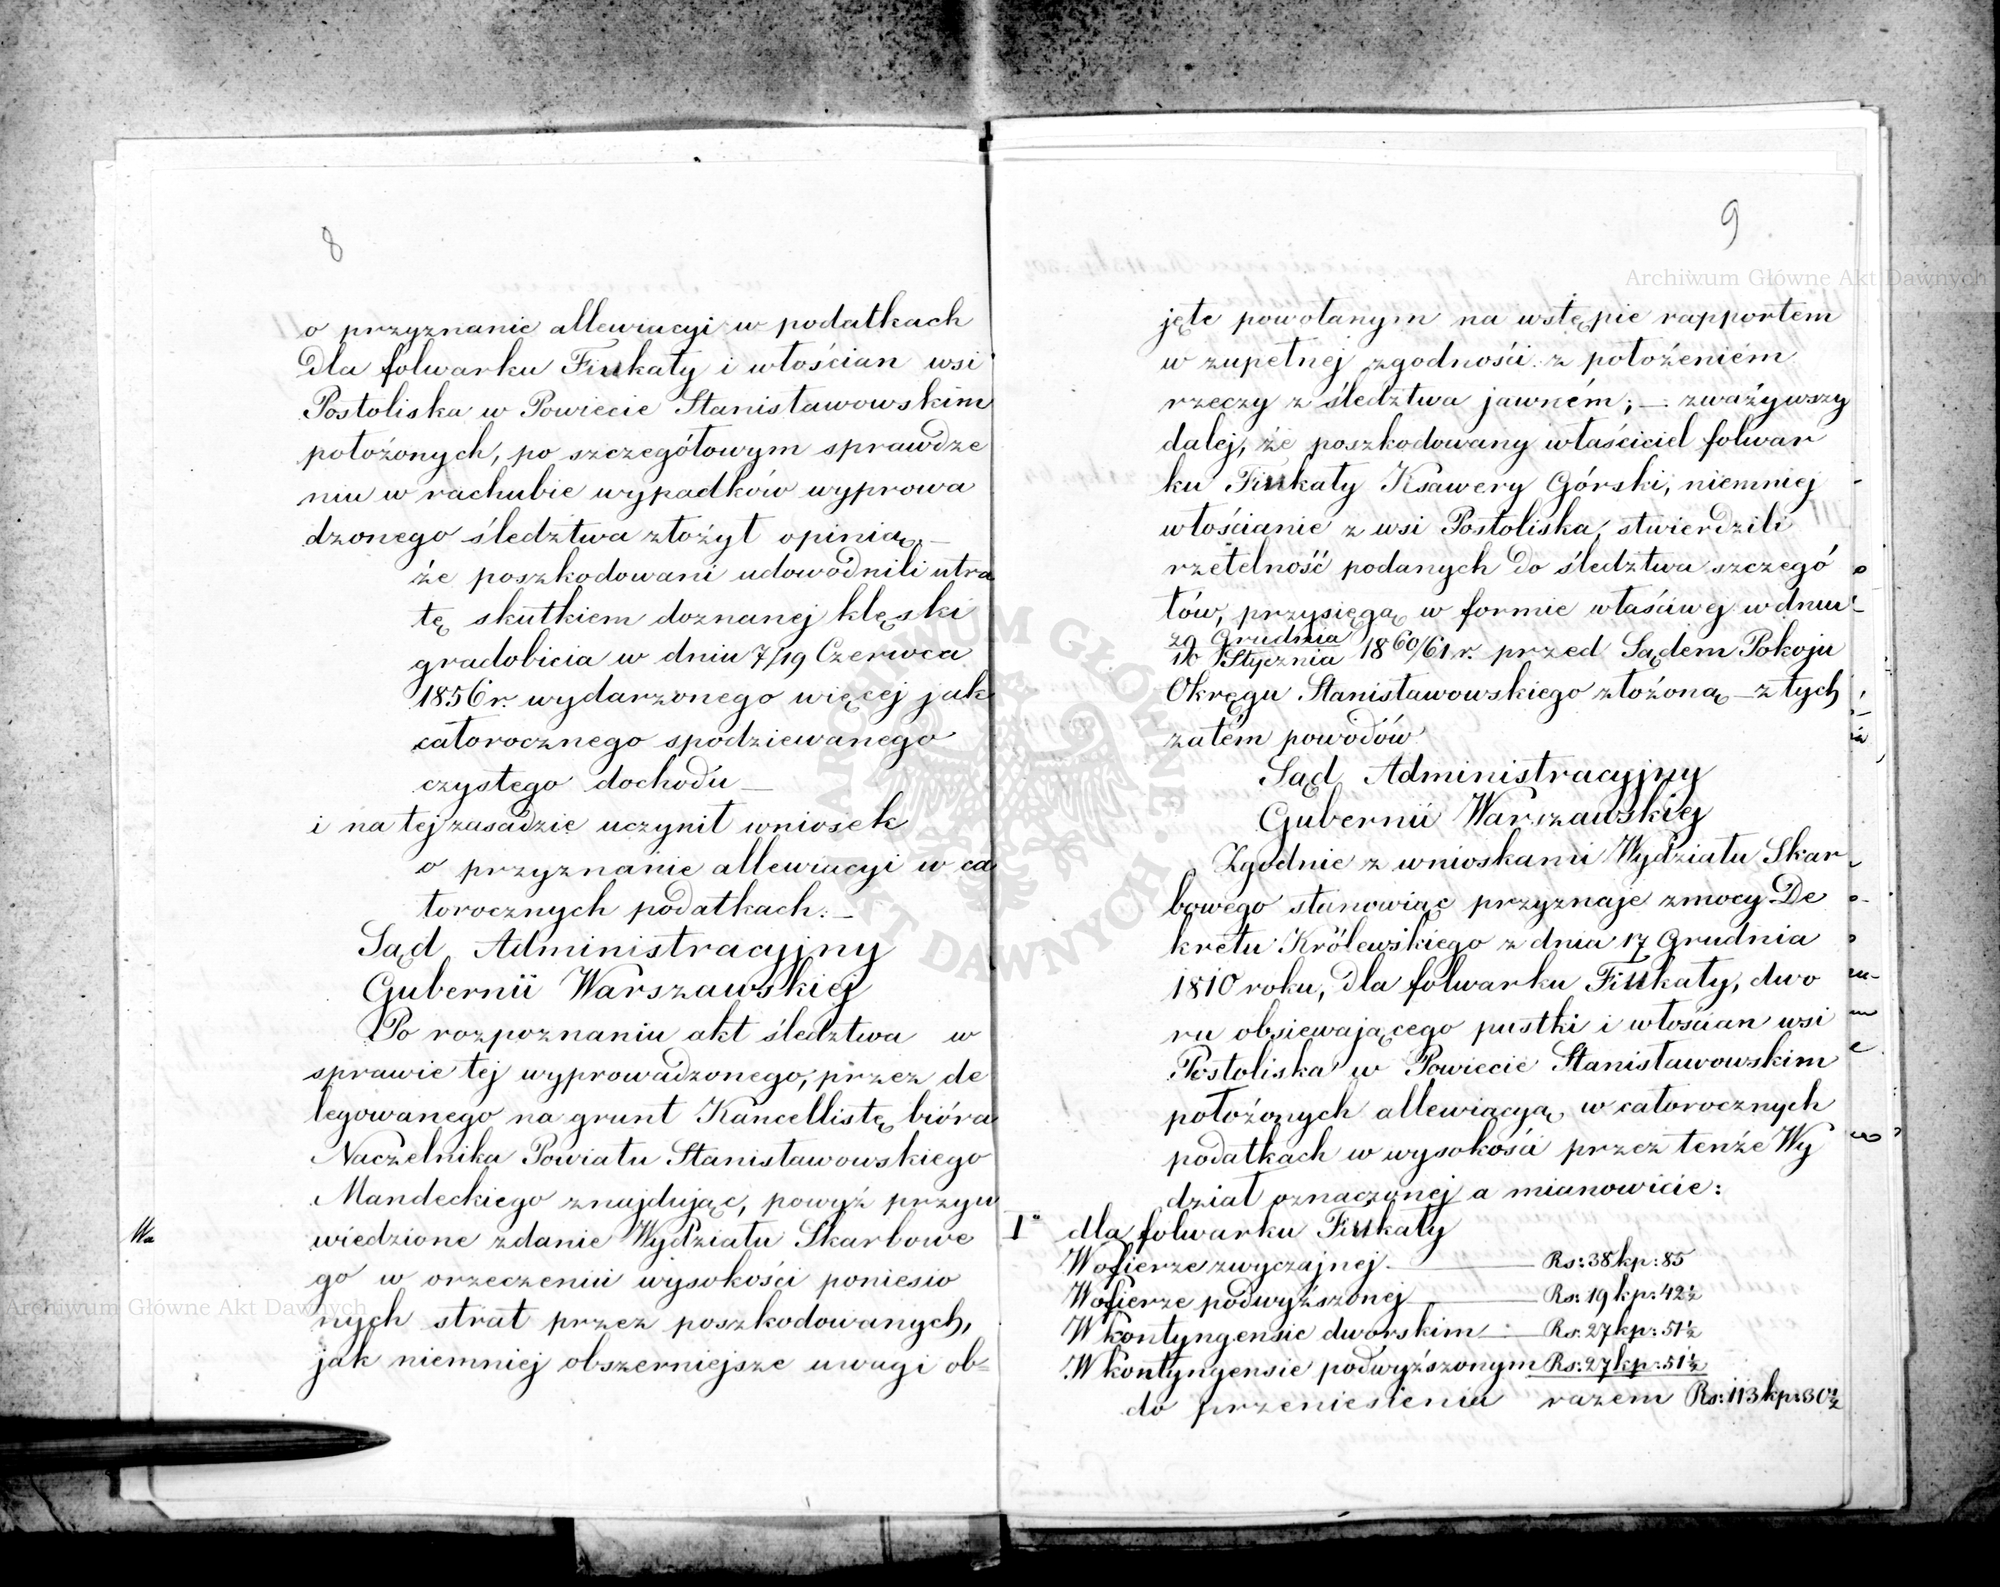 8
o przyznanie allewiacyi w podatkach
dla folwarku Finkały i włościan wsi
Postoliska w Powiecie Stanisławowskim
położonych, po szczegółowym sprawdze
niu w rachubie wypadków wyprowa
dzonego śledztwa złożył opinią, —
że poszkodowani udowodnili utra
tę skutkiem doznanej klęski
gradobicia w dniu 7/19 Czerwca
1856 r. wydarzonego więcej jak
całorocznego spodziewanego
czystego dochodu —
i na tej zasadzie uczynił wniosek
o przyznanie allewiacyi w ca
łorocznych podatkach. —
Sąd Administracyjny
Gubernii Warszawskiej
Po rozpoznaniu akt śledztwa w
sprawie tej wyprowadzonego, przez de
legowanego na grunt Kancellistę bióra
Naczelnika Powiatu Stanisławowskiego
Mandeckiego znajdując, powyż przyw
wiedzione zdanie Wydziału Skarbowe
go w orzeczeniu wysokości poniesio
nych strat przez poszkodowanych,
jak niemniej obszerniejsze uwagi ob=
9
jęte powołanym na wstępie rapportem
w zupełnej zgodności z położeniem
rzeczy z śledztwa jawném; — zważywszy
dalej, że poszkodowany właściciel folwar
ku Finkały Ksawery Górski, niemniej
włościanie z wsi Postoliska, stwierdzili
rzetelność podanych do śledztwa szczegó
łów, przysięgą w formie właściwej w dniu
29 Grudnia
16 Stycznia 1860/61 r. przed Sądem Pokoju
Okręgu Stanisławowskiego złożoną — z tych
zatém powodów
Sąd Administracyjny
Gubernii Warszawskiej
Zgodnie z wnioskami Wydziału Skar
bowego stanowiąc przyznaje z mocy De
kretu Królewskiego z dnia 17 Grudnia
1810 roku, dla folwarku Finkały, dwo
ru obsiewającego pustki i włościan wsi
Postoliska w Powiecie Stanisławowskim
położonych allewiacyą w całorocznych
podatkach w wysokości przez tenże Wy
dział oznaczonej a mianowicie:
I° dla folwarku Finkały
W ofierze zwyczajnej — Rs: 38 kp: 85
W ofierze podwyższonej — Rs: 19 kp: 42½
W kontyngensie dworskim — Rs: 27 kp: 51½
W kontyngensie podwyższonym Rs: 27 kp: 51½
do przeniesienia razem Rs: 113 kp: 30½
Archiwum Główne Akt Dawnych
Archiwum Główne Akt Dawnych
ARCHIWUM GŁÓWNE AKT DAWNYCH